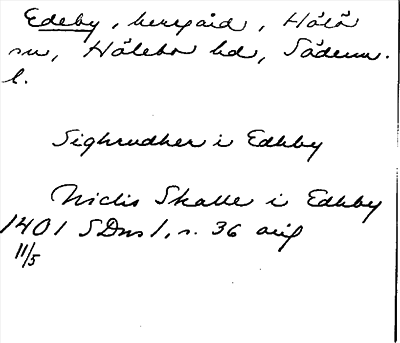 Edeby, herrgård, Hölö
sn, Hölebo hd, Söderm.
l.
Sighrudher i Edhby
Niclis Skalle i Edhby
1401 SDns 1, s. 36 orig
11/5